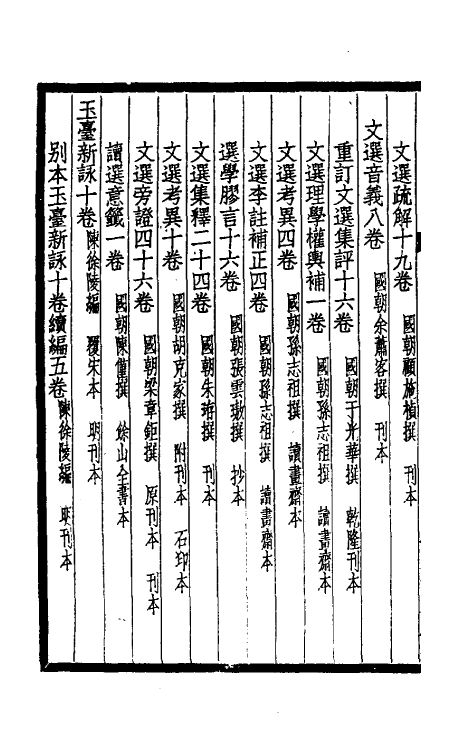 文選疏解十九卷 國朝顧施楨撰 刊本
文選音義八卷 國朝余蕭客撰 刊本
重訂文選集評十六卷 國朝于光華撰 乾隆刊本
文選理學權輿補一卷 國朝孫志祖撰 讀畫齋本
文選考異四卷 國朝孫志祖撰 讀畫齋本
文選李註補正四卷 國朝孫志祖撰 讀畫齋本
選學膠言十六卷 國朝張雲璈撰 抄本
文選集釋二十四卷 國朝朱珔撰 刊本
文選考異十卷 國朝胡克家撰 附刊本 石印本
文選旁證四十六卷 國朝梁章鉅撰 原刊本 刊本
讀選意籤一卷 國朝陳僅撰 餘山全書本
玉臺新詠十卷 陳徐陵編 覆宋本 明刊本
別本玉臺新詠十卷續編五卷 陳徐陵編 明刊本